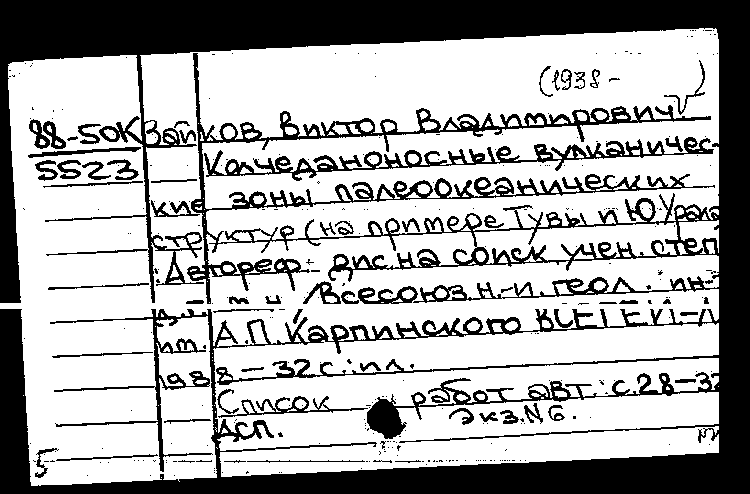 (1938-    )
88-50К Зайков, Виктор Владимирович
5523 Колчеданоносные вулканичес-
кие зоны палеоокеанических
структур (на примере Тувы и Ю.Урала
: Автореф. дис. на соиск. учен. степ
д.г.-м.н. / Всесоюз. н.-и. геол. ин-
им. А.П. Карпинского ВСЕГЕИ.-Л
1988 - 32 с.: ил.
Список работ авт.: с.28-32
ДСП. Экз.N6.
5